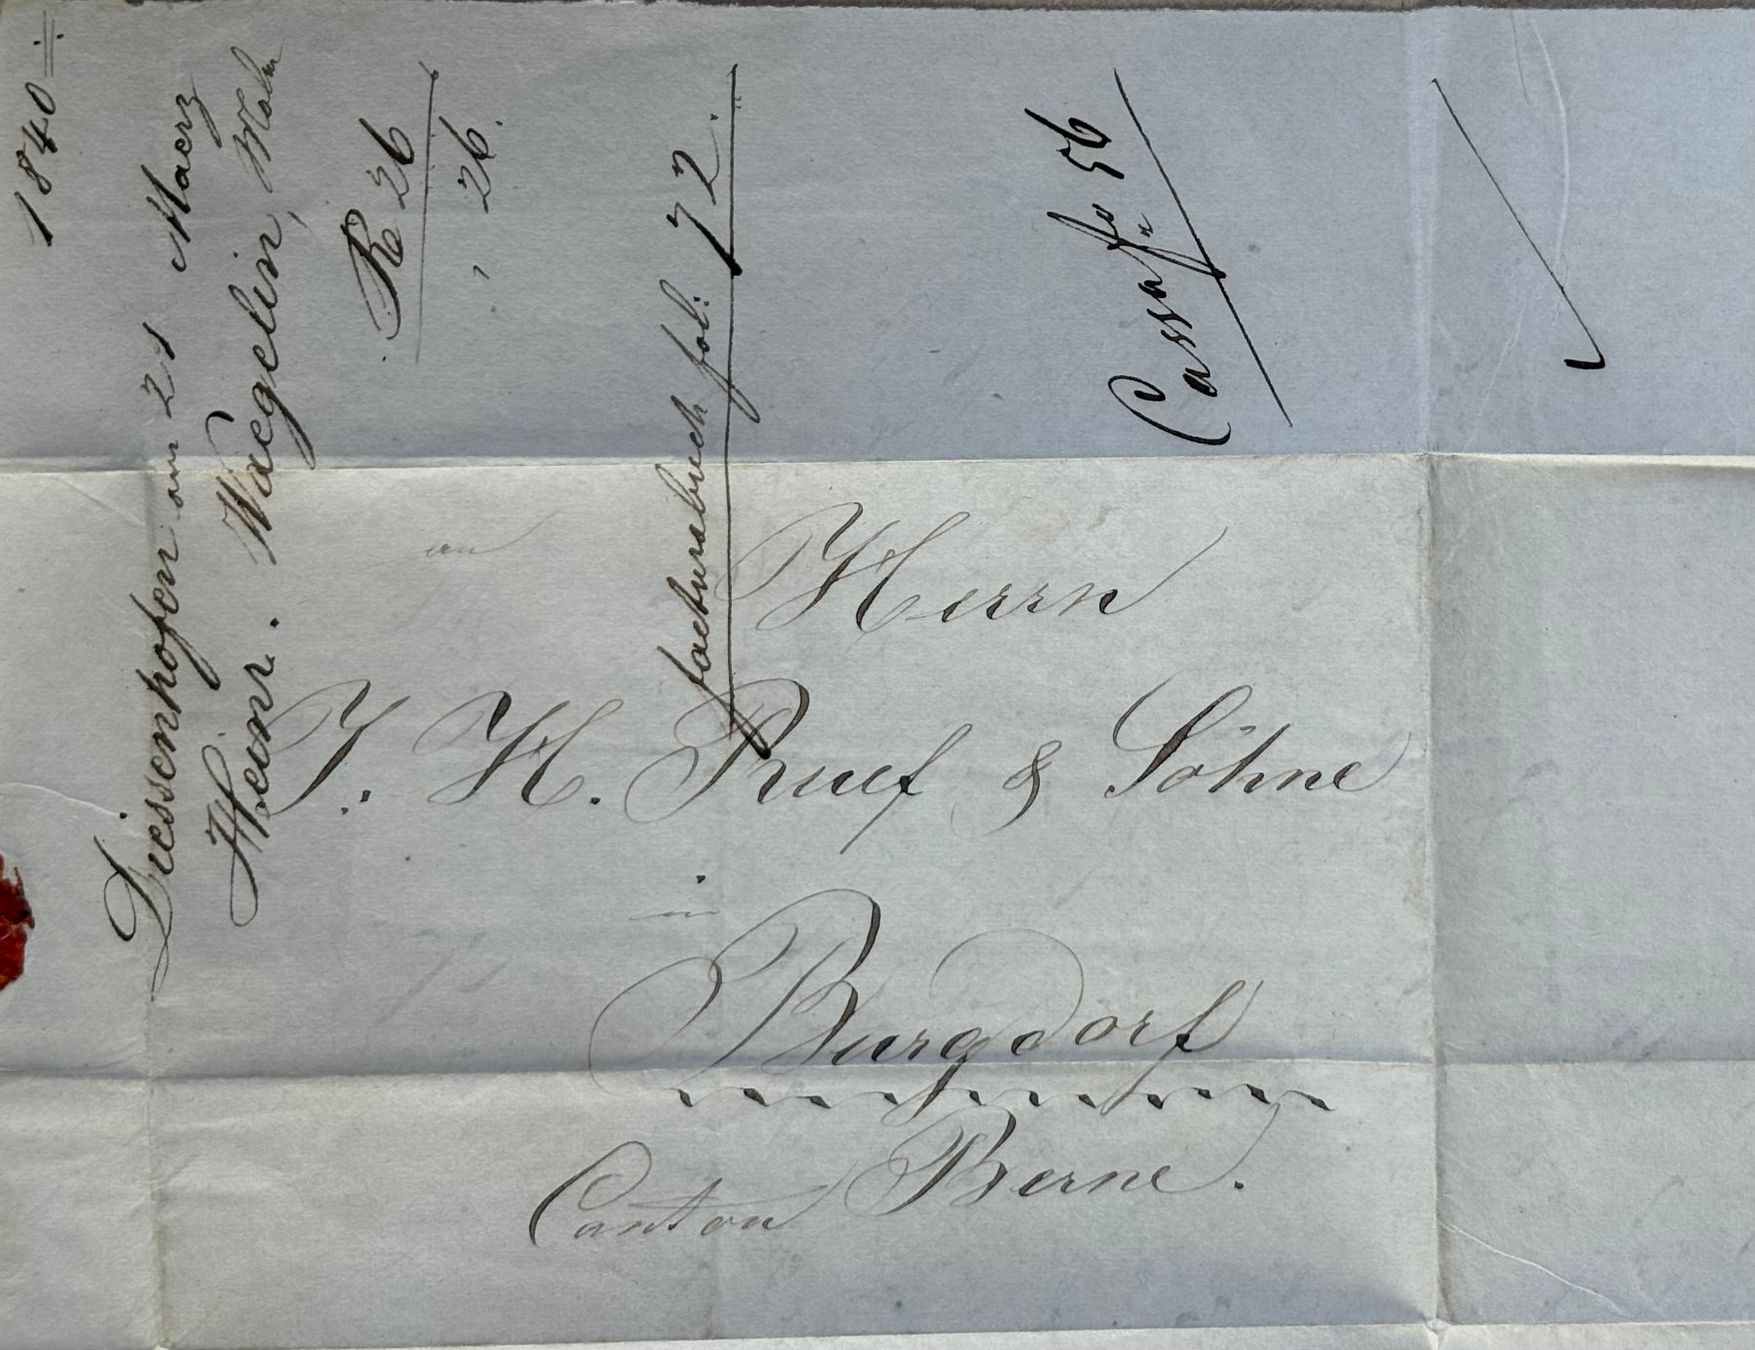 1840
Diessenhofen am 21 Maerz
Heinr. Waegelin,
R 26
26.
facturabuch fol: 72.
Cassa fo 56
an
Herrn
J. H. Ruef & Söhne
in
Burgdorf
Canton Berne.